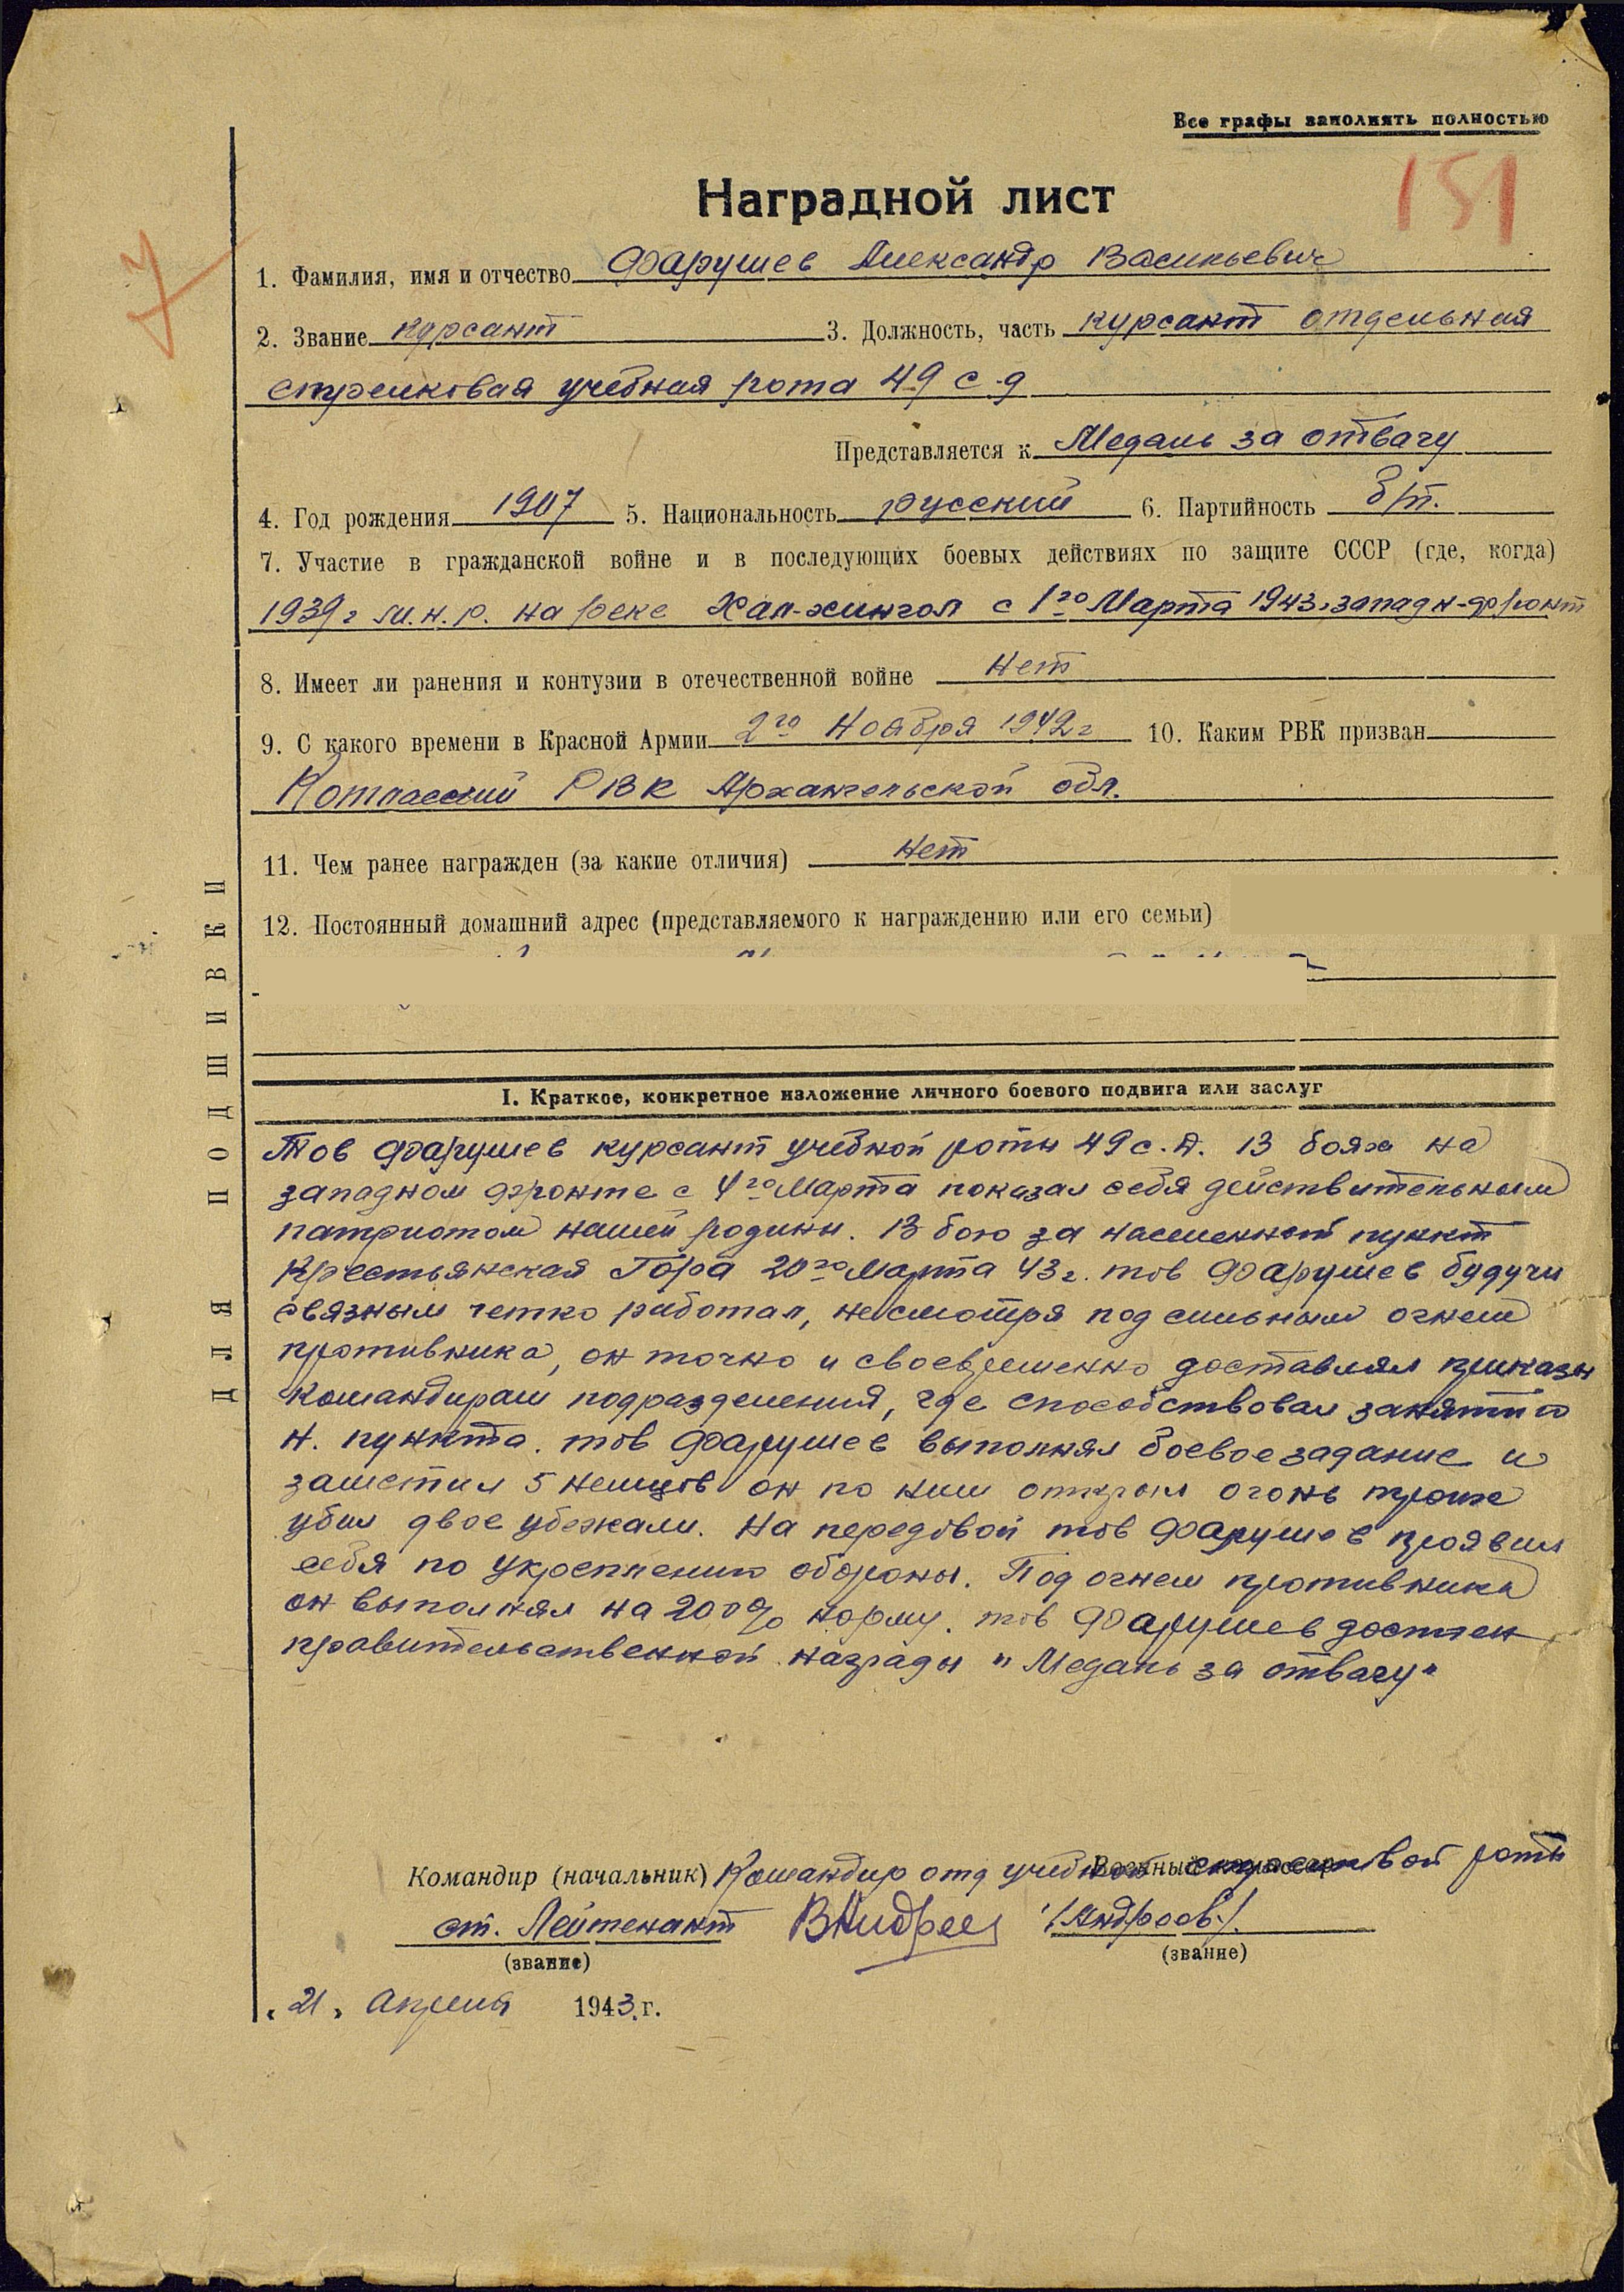 Все графы заполнять полностью
151
Наградной лист
7
1. Фамилия, имя и отчество Фарушев Александр Васильевич
2. Звание курсант 3. Должность, часть курсант отдельная
стрелковая учебная рота 49 с.д
Представляется к Медаль за отвагу
4. Год рождения 1907 5. Национальность русский 6. Партийность б/п.
7. Участие в гражданской войне и в последующих боевых действиях по защите СССР (где, когда)
1939г м.н.р. на реке Хал-хингол с 1го Марта 1943г западн-фронт
8. Имеет ли ранения и контузии в отечественной войне нет
9. С какого времени в Красной Армии 2го Ноября 1942г 10. Каким РВК призван
Котласский РВК Архангельской обл.
11. Чем ранее награжден (за какие отличия) нет
12. Постоянный домашний адрес (представляемого к награждению или его семьи)
ДЛЯ ПОДШИВКИ
I. Краткое, конкретное изложение личного боевого подвига или заслуг
Тов Фарушев курсант учебной роты 49 с.д. В боях на
западном фронте с 4го Марта показал себя действительным
патриотом нашей родины. В бою за населенный пункт
Крестьянская Гора 20го Марта 43г. тов Фарушев будучи
связным четко работал, несмотря под сильным огнем
противника, он точно и своевременно доставлял приказы
командирам подразделения, где способствовал занятию
н. пункта. тов Фарушев выполнял боевое задание и
заметил 5 немцов он по ним открыл огонь трои
убил двое убежали. На передовой тов Фарушев проявил
себя по укреплению обороны. Под огнем противника
он выполнял на 200% норму. тов Фарушев достоен
правительственной награды "Медаль за отвагу"
Командир (начальник) Командир отд учебной стрелковой роты
ст. Лейтенант ВАндреев /Андреев/.
(звание) (звание)
"21" апреля 1943.г.